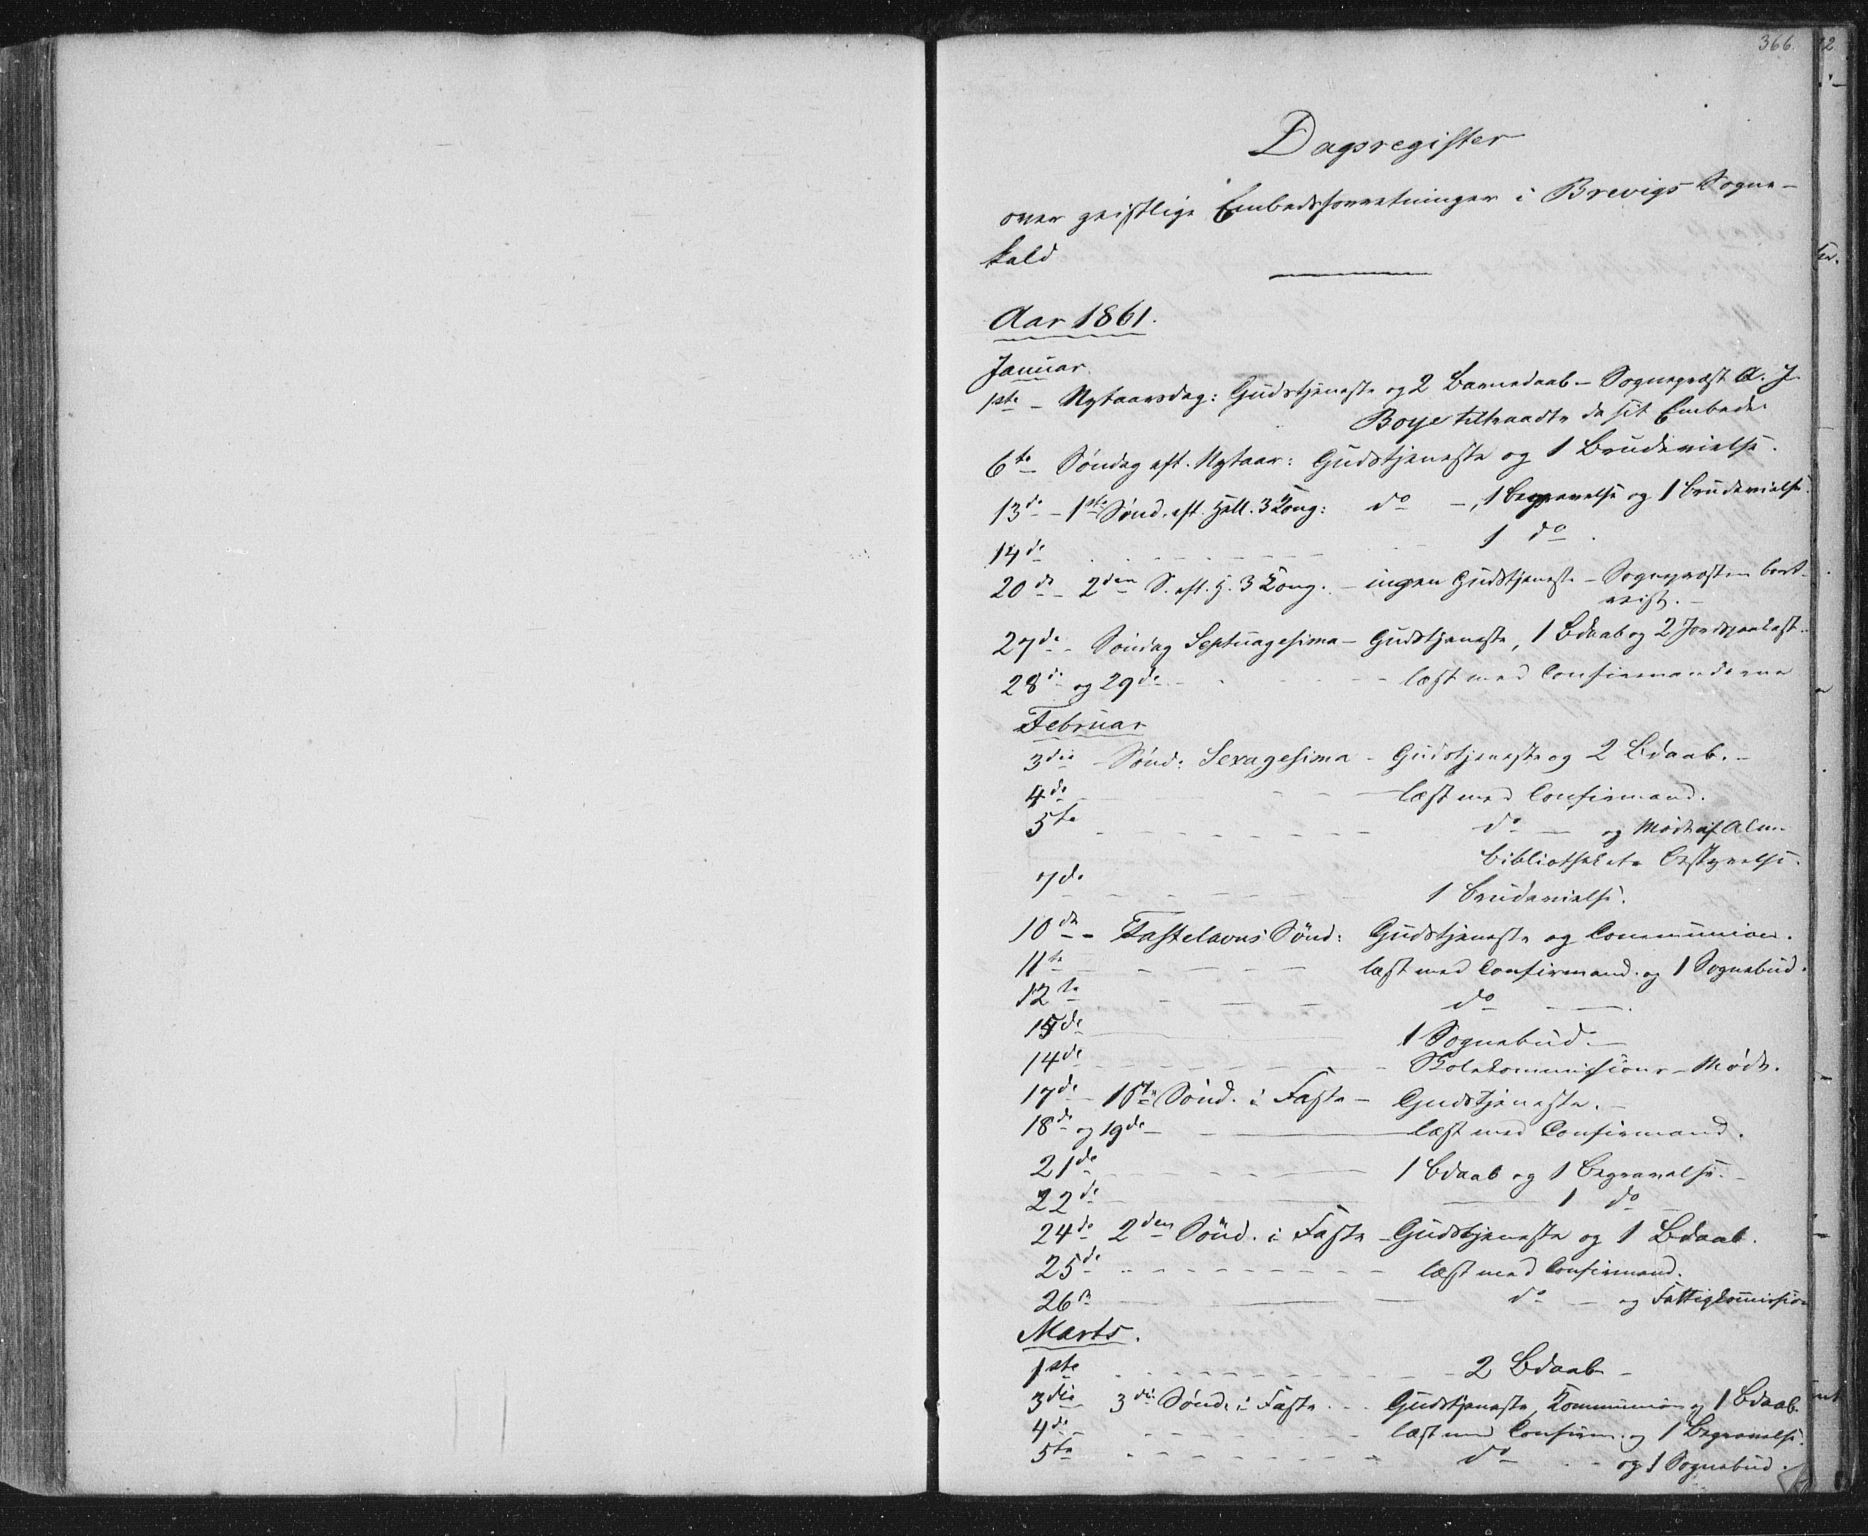 366.
Dagsregister
over geistlige Embedsforretninger i Brevigs Sogne-
kald
Aar 1861.
Januar.
1ste - Nytaarsdag: Gudstjeneste og 2 Barnedaab - Sognepræst A. J.
Boye tiltraadte da sit Embede.
6te Søndag eft. Nytaar: Gudstjeneste og 1 Brudevielse.
13de - 1ste Sønd. eft. Hell. 3 Kong: do -, 1 Begravelse og 1 Brudevielse.
14de 1 do.
20de - 2den S. eft. H. 3 Kong. - ingen Gudstjeneste - Sognepræsten bort-
reist. -
27de - Søndag Septuagesima - Gudstjeneste, 1 Bdaab og 2 Jordpaakast.
28de og 29de - læst med Confirmanderne
Februar
3die - Sønd: Sexagesima - Gudstjeneste og 2 Bdaab. -
4de læst med Confirmand.
5te do - og Møde af Alm.
Bibliothekets Bestyrelse.
7de 1 Brudevielse.
10de - Fastelavns Sønd: Gudstjeneste og Communion.
11te læst med Confirmand. og 1 Sognebud.
12te do
15de 1 Sognebud. -
14de Skolekommissions-Møde.
17de - 1ste Sønd. i Faste - Gudstjeneste. -
18de og 19de - læst med Confirmand.
21de 1 Bdaab og 1 Begravelse. -
22de 1 do
24de 2den Sønd. i Faste - Gudstjeneste og 1 Bdaab.
25de læst med Confirmand.
26de do - og Fattigkommission
Marts.
1ste 2 Bdaab -
3die 3die Sønd. i Faste - Gudstjeneste, Kommunion og 1 Bdaab.
4de læst med Confirm. og 1 Begravelse.
5te do og 1 Sognebud.